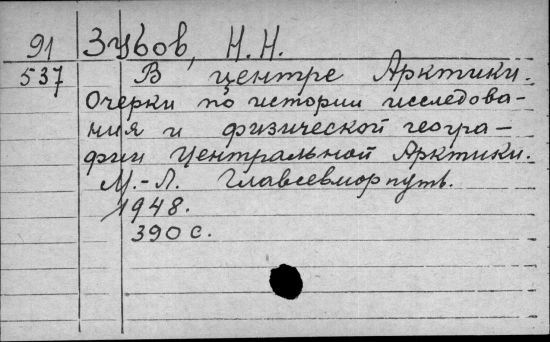 91 Зубов, Н.Н.
537 В центре Арктики.
Очерки по истории исследова-
ния и физической геогра-
фии Центральной Арктики.
М.-Л. Главсевморпуть.
1948.
390 с.